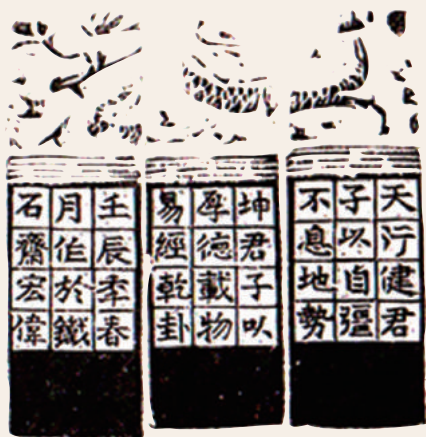 天行健君
子以自彊
不息地勢
坤君子以
厚德載物
易經乾卦
壬辰季春
月作於鐵
石齋宏偉